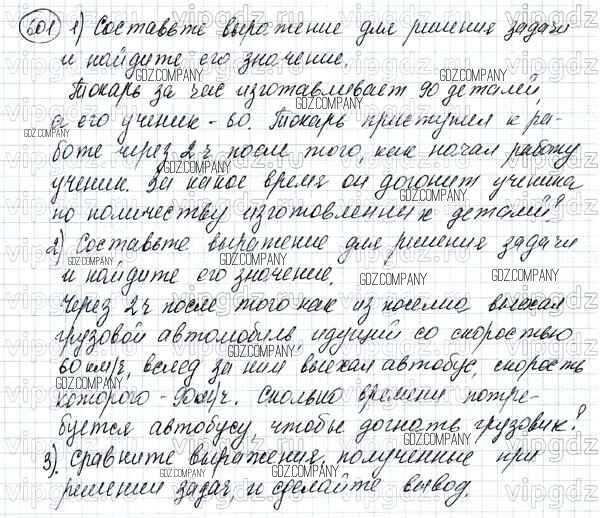 601 1) Составьте выражение для решения задачи
и найдите его значение.
Токарь за час изготавливает 90 деталей,
а его ученик - 60. Токарь приступил к ра-
боте через 2 ч после того, как начал работу
ученик. За какое время он догонит ученика
по количеству изготовленных деталей?
2) Составьте выражение для решения задачи
и найдите его значение.
Через 2 ч после того как из поселка выехал
грузовой автомобиль, идущий со скоростью
60 км/ч, вслед за ним выехал автобус, скорость
которого - км/ч. Сколько времени потре-
буется автобусу, чтобы догнать грузовик?
3). Сравните выражения, полученные при
решении задач, и сделайте вывод.